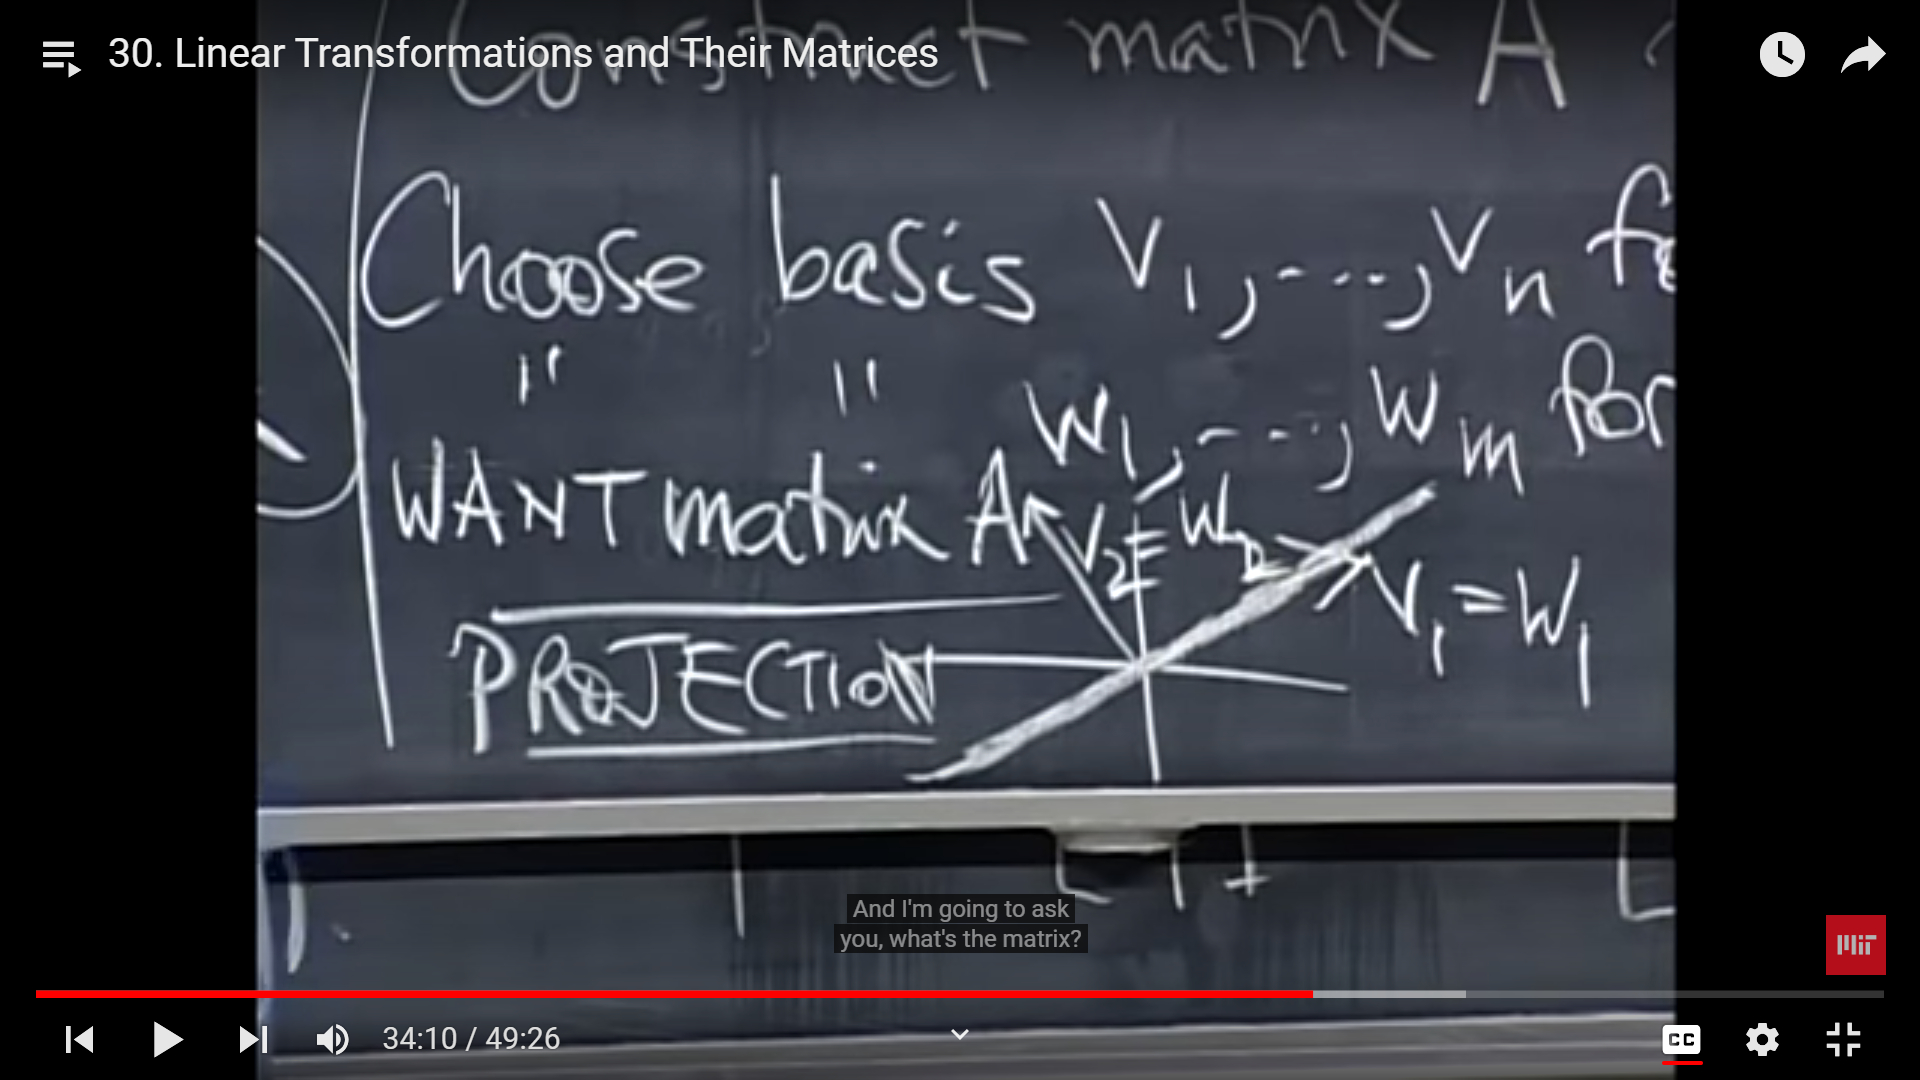 30. Linear Transformations and Their Matrices
Construct matrix A
Choose basis V1, ..., Vn fo
" " W1, ..., Wm for
WANT matrix A
V2 = W2
V1 = W1
PROJECTION
And I'm going to ask
you, what's the matrix?
MIT
34:10 / 49:26
CC